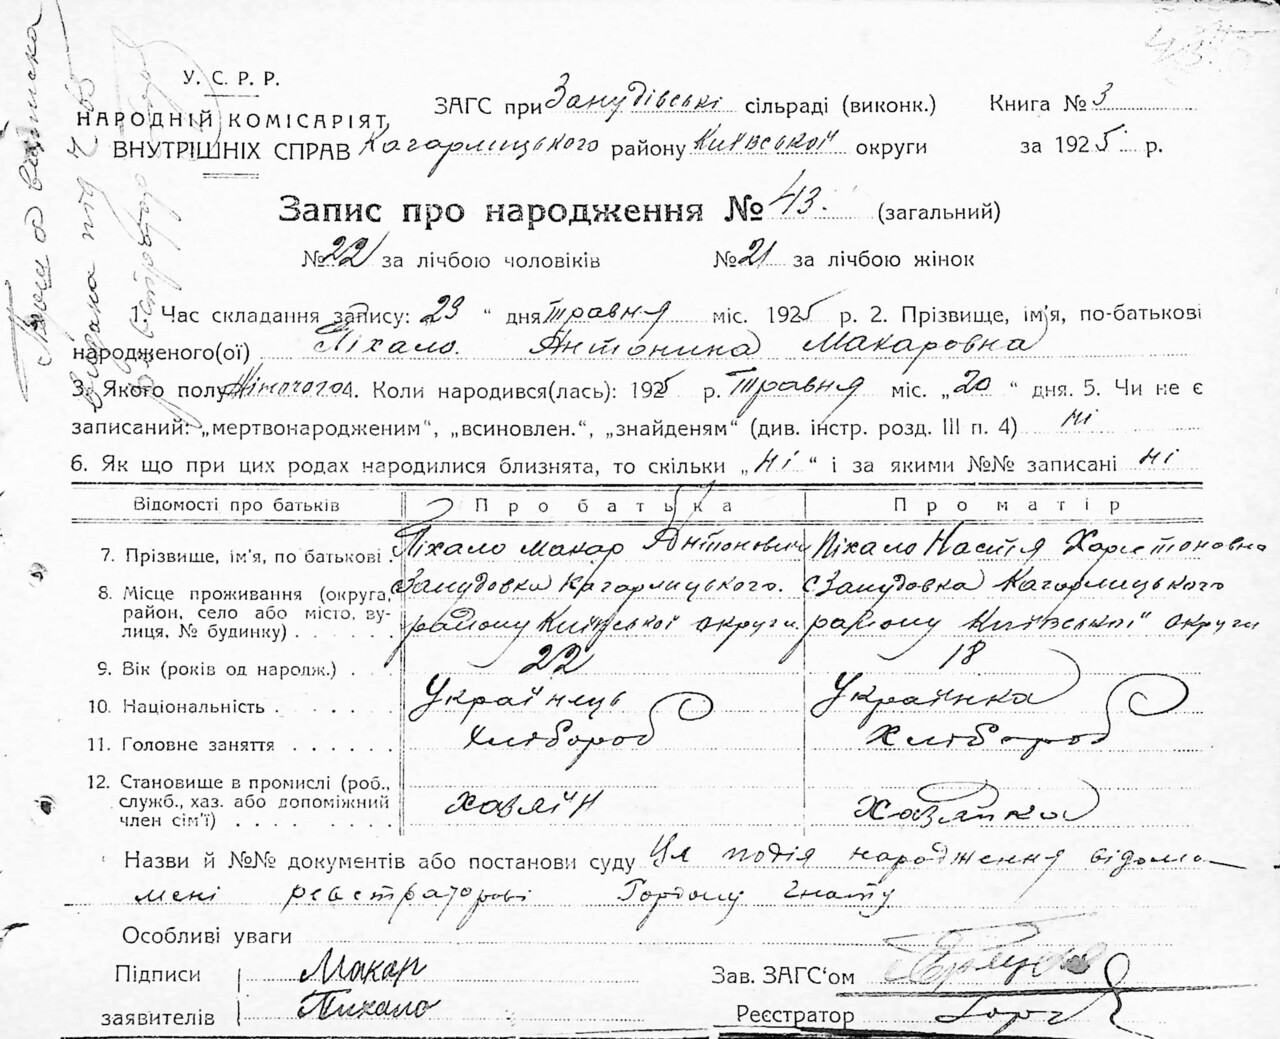 У. С. Р. Р.
НАРОДНІЙ КОМІСАРІЯТ
ВНУТРІШНІХ СПРАВ
ЗАГС при Занудівські сільраді (виконк.) Книга № 3
Кагарлицького району Київської округи за 1925 р.
Запис про народження № 43. (загальний)
№ 22 за лічбою чоловіків № 21 за лічбою жінок
1. Час складання запису: 23 " дня травня міс. 1925 р. 2. Прізвище, ім'я, по-батькові
народженого(ої) Піхало. Антонина Макаровна
3. Якого полу Жіночого 4. Коли народився(лась): 1925 р. Травня міс. „20 " дня. 5. Чи не є
записаний: „мертвонародженим", „всиновлен.", „знайденям" (див. інстр. розд. III п. 4) ні
6. Як що при цих родах народилися близнята, то скільки „ні " і за якими №№ записані ні
Відомості про батьків Про батька Про матір
7. Прізвище, ім'я, по батькові . Піхало Макар Антонович Піхало Настя Харитоновна
8. Місце проживання (округа, Занудовка Кагарлицького. с Занудовка Кагарлицького
район, село або місто, ву-
лиця, № будинку) . . . . . . району Київської округи. району Київської округи
9. Вік (років од народж.) . . . 22 18
10. Національність . . . . . . Українець Українка
11. Головне заняття . . . . . . Хлібороб Хлібороб
12. Становище в промислі (роб.,
служб., хаз. або допоміжний хазяїн Хазяйка
член сім'ї) . . . . . . . .
Назви й №№ документів або постанови суду Ця подія народження відома
мені реєстраторові Гордому Гнату
Особливі уваги
Підписи Макар Зав. ЗАГС'ом
заявителів Пихало Реєстратор